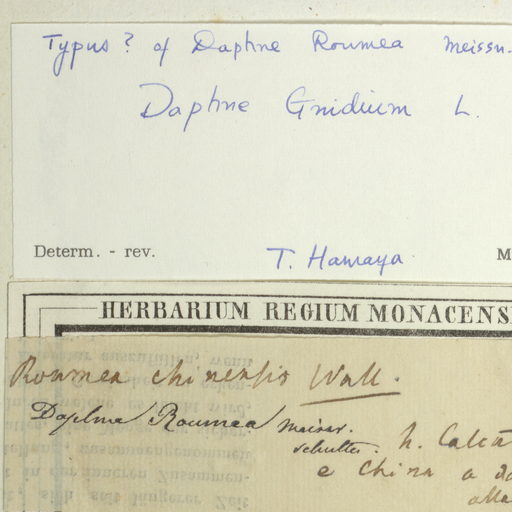 Typus? of Daphne Roumea Meissn.
Daphne Gnidium L.
Determ. - rev. T. Hamaya M
HERBARIUM REGIUM MONACENS
Roumea chinensis Wall.
Daphne Roumea Meissn.
h. Calcu
e China a